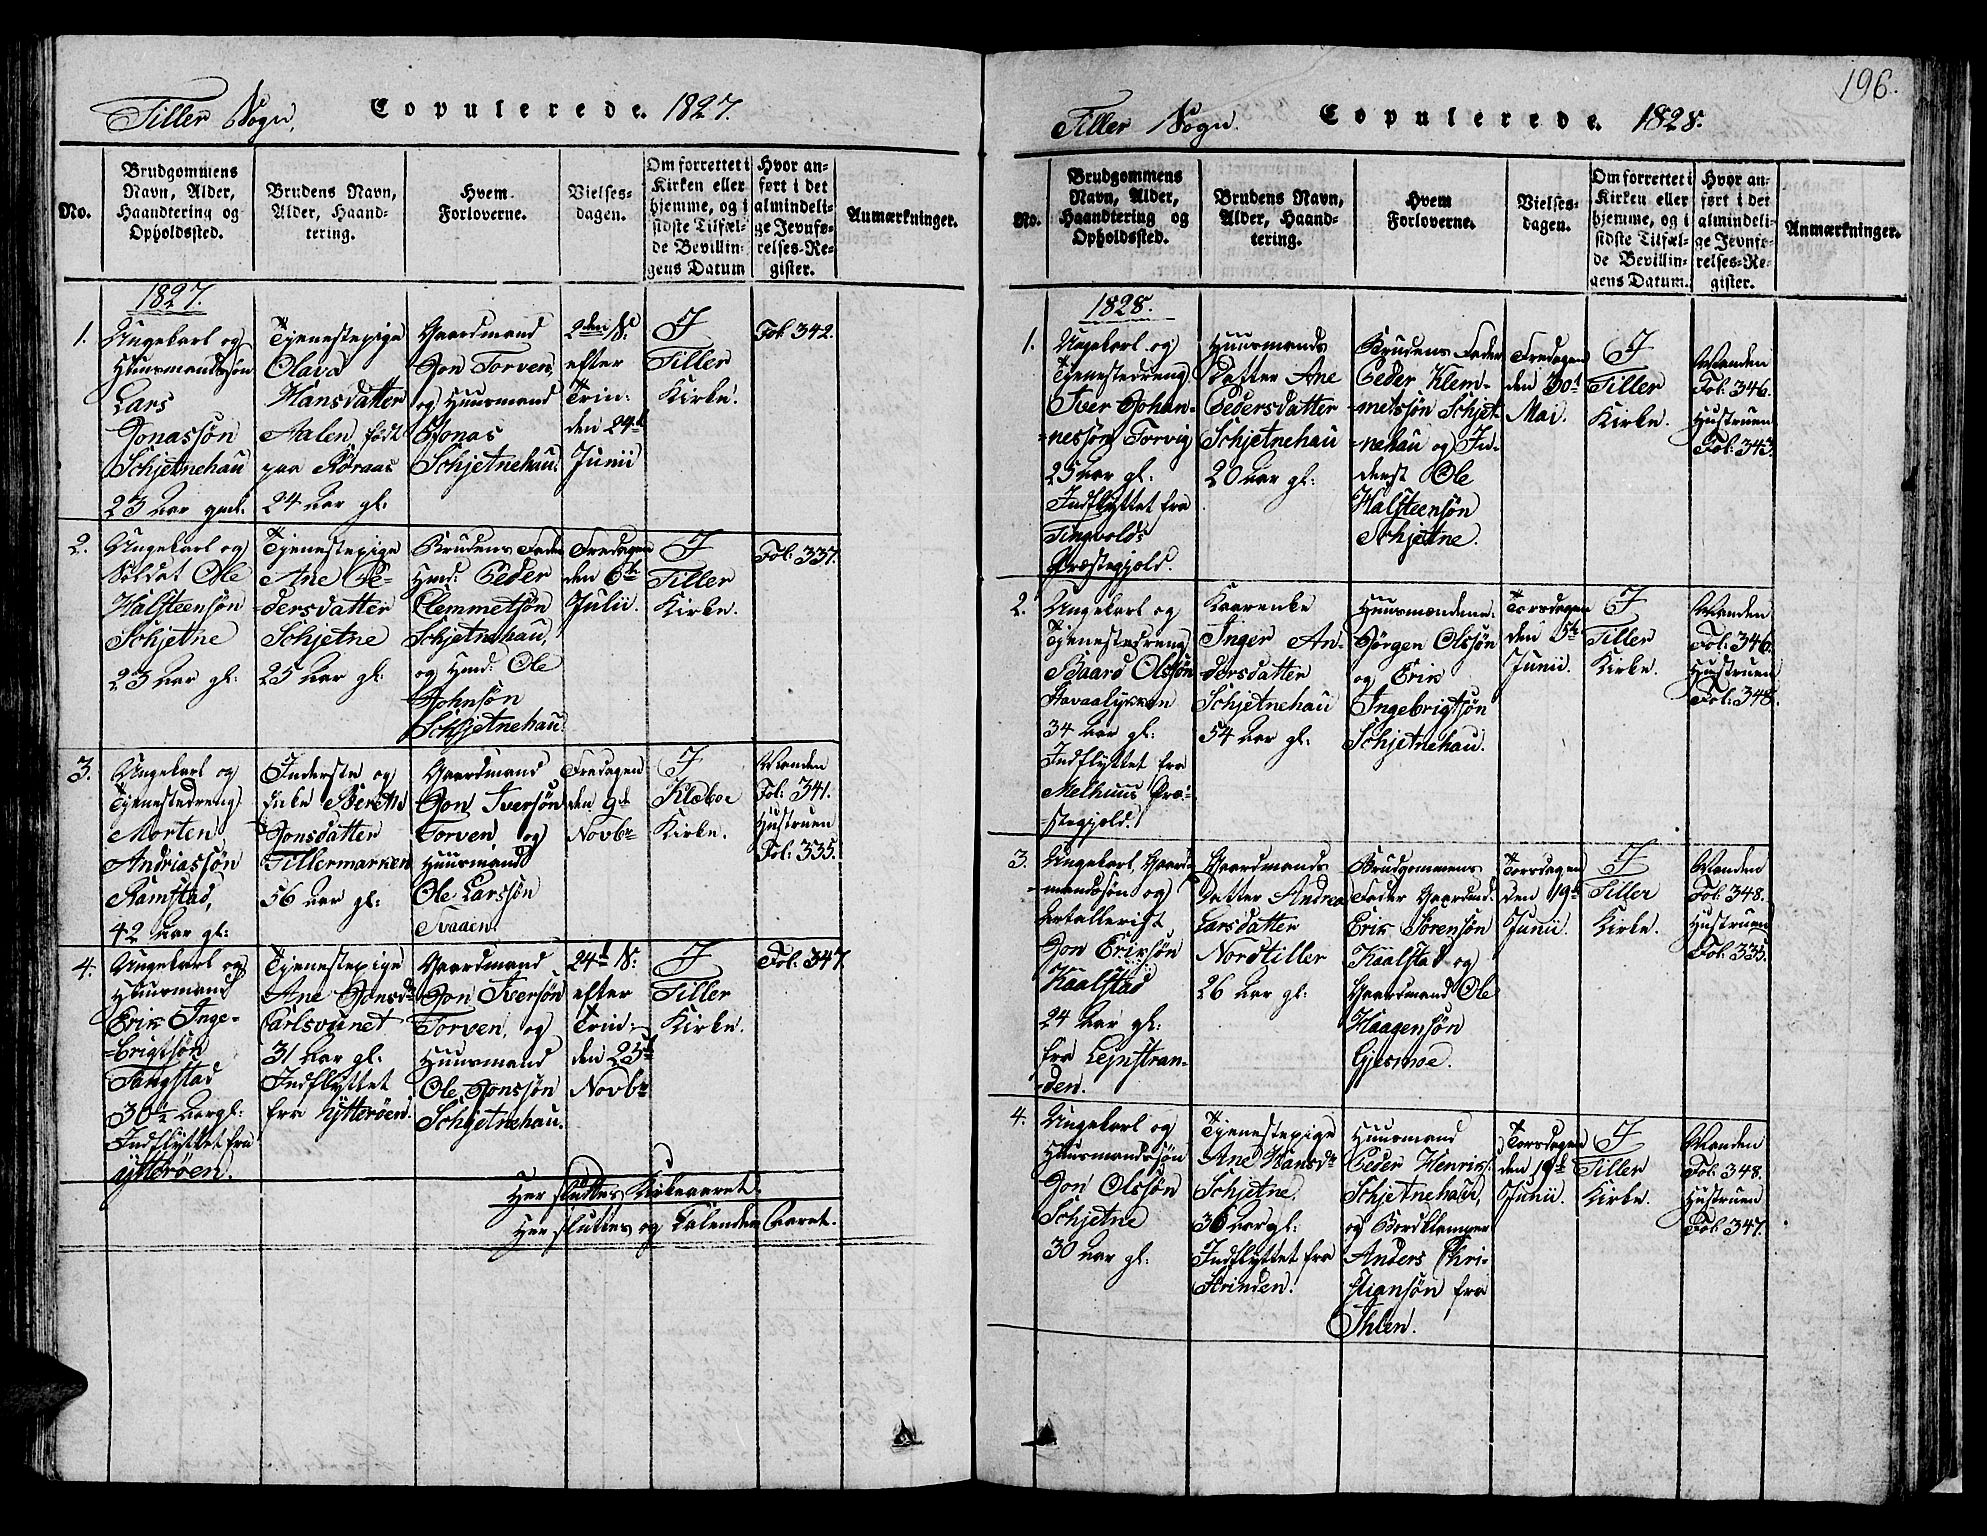 Tiller Sogn. Copulerede. 1827.
No.
Brudgommens
Navn, Alder,
Haandtering og
Opholdssted.
Brudens Navn,
Alder, Haand-
tering.
Hvem
Forloverne.
Vielses-
dagen.
Om forrettet i
Kirken eller
hjemme, og i
sidste Tilfæl-
de Bevillin-
gens Datum
Hvor an-
ført i det
almindeli-
ge Jevnfø-
relses-Re-
gister.
Anmærkninger.
1827.
1.
Ungekarl og
Huusmandssøn
Lars
Jonassøn
Schjetnehau
23 Aar gml.
Tjenestepige
Olava
Hansdatter
Aalen, født
paa Røraas
24 Aar gl:
Gaardmand
Jon Torven,
og Huusmand
Jonas
Schjetnehau.
2den S:
efter
Trin:
den 24de
Junii
I
Tiller
Kirke.
Fol. 342.
2.
Ungekarl og
Soldat Ole
Halsteensøn
Schjetne
23 Aar gl:
Tjenestepige
Ane Pe-
dersdatter
Schjetne
25 Aar gl:
Brudens Fader
Hmd: Peder
Clemmetsøn
Schjetnehau,
og Hmd: Ole
Johnsøn
Schjetnehau.
Fredagen
den 6te
Julii.
I
Tiller
Kirke.
Fol. 337.
3.
Ungekarl og
Tjenestedreng
Morten
Andriassøn
Ramstad,
42 Aar gl:
Inderste og
Enke Bereth
Jonsdatter
Tillermarken
56 Aar gl:
Gaardmand
Jon Iversøn
Torven, og
Huusmand
Ole Larssøn
Svaaen.
Fredagen
den 9de
Novbr
I
Klæboe
Kirke.
Manden
Fol. 341.
Hustruen
Fol. 335.
4.
Ungekarl og
Huusmand
Erik Inge-
-brigtsøn
Tangstad
30½ Aar gl:
Indflyttet fra
Ytterøen.
Tjenestepige
Ane Jonsdr
Carlsvunet
31 Aar gl:
Indflyttet
fra Ytterøen.
Gaardmand
Jon Iversøn
Torven, og
Huusmand
Ole Jonssøn
Schjetnehau.
24de S:
efter
Trin:
den 25de
Novbr
I
Tiller
Kirke.
Fol. 347.
Her sluttes Kirkeaaret.
Her sluttes og Calender Aaret.
196.
Tiller Sogn. Copulerede. 1828.
No.
Brudgommens
Navn, Alder,
Haandtering og
Opholdssted.
Brudens Navn,
Alder, Haand-
tering.
Hvem
Forloverne.
Vielses-
dagen.
Om forrettet i
Kirken eller
hjemme, og i
sidste Tilfæl-
de Bevillin-
gens Datum.
Hvor an-
ført i det
almindeli-
ge Jevnfø-
relses-Re-
gister.
Anmærkninger.
1828.
1.
Ungekarl og
Tjenestedreng
Iver Johan-
-nessøn Torvig
25 Aar gl:
Indflyttet fra
Tingvolds
Præstegjeld.
Huusmands
Datter Ane
Pedersdatter
Schjetnehau
20 Aar gl:
Brudens Fader
Peder Klem-
-metssøn Schjet-
-nehau og In-
derst Ole
Halsteensøn
Schjetne.
Fredagen
den 30te
Mai.
I
Tiller
Kirke.
Manden
Fol. 346.
Hustruen
Fol. 343.
2.
Ungekarl og
Tjenestedreng
Baard Olssøn
34 Aar gl:
Indflyttet fra
Melhuus Præ-
-stegjeld.
Inger An-
dersdatter
Schjetnehau
54 Aar gl:
Huusmændene
Jørgen Olssøn
og Erik
Ingebrigtsøn
Schjetnehau.
Torsdagen
den 5te
Junii.
I
Tiller
Kirke.
Manden
Fol. 346.
Hustruen
Fol. 348.
3.
Ungekarl, Gaard-
-mandssøn og
Artallerist
Jon Eriksøn
Kaalstad
24 Aar gl:
fra Lejnstran-
-den.
Gaardmands
Datter Andrea
Larsdatter
Nordtiller
26 Aar gl:
Brudgommens
Fader Gaardmd:
Erik Sorensøn
Kaalstad og
Gaardmand Ole
Haagensøn
Gjesmoe.
Torsdagen
den 19de
Junii.
I
Tiller
Kirke.
Manden
Fol. 348.
Hustruen
Fol. 335.
4.
Ungekarl og
Huusmandssøn
Jon Olssøn
Schjetne
30 Aar gl:
Tjenestepige
Ane Hansdr
Schjetne,
36 Aar gl:
Indflyttet fra
Strinden.
Huusmand
Peder Henrik:
Schjetnehau,
og Bordklamper
Anders Chri-
stiansøn fra
Ihlen.
Torsdagen
den 19de
Junii.
I
Tiller
Kirke.
Manden
Fol. 348.
Hustruen
Fol. 347.